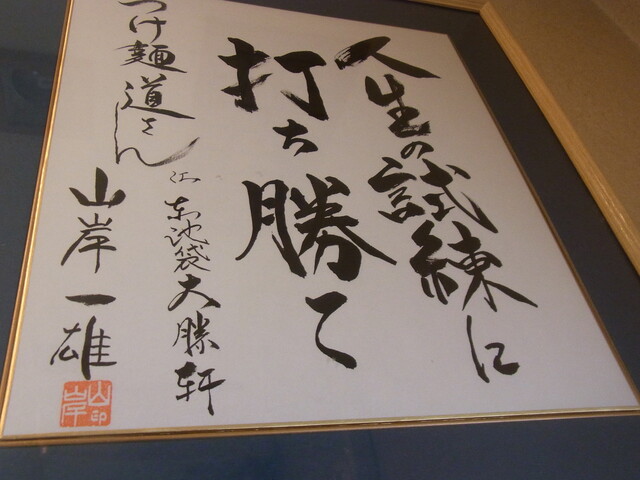 人生の試練に
打ち勝て
つけ麺道さん
江
東池袋大勝軒
山岸一雄
山岸印